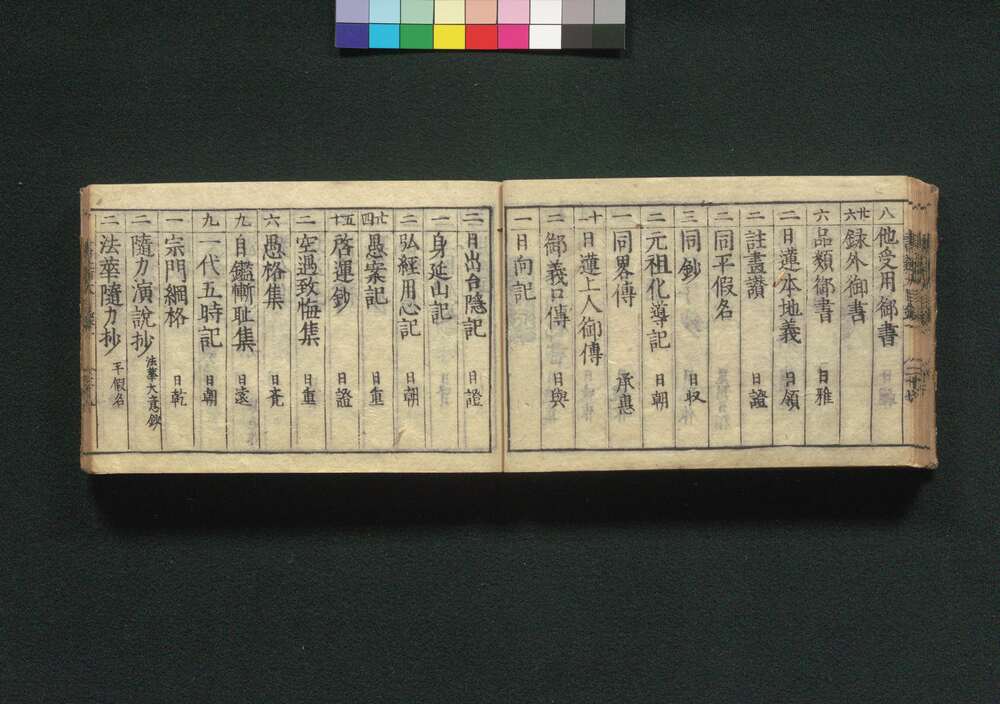 八 他受用御書
廿六 録外御書
六 品類御書 日雅
二 日蓮本地義 日領
二 註畫讃 日證
二 同平假名
三 同鈔 日収
二 元祖化導記 日朝
一 同畧傳 承慧
十 日蓮上人御傳
二 御義口傳 日興
一 日向記
二 日出台隠記 日證
一 身延山記
二 弘経用心記 日朝
廿四 愚案記 日重
五十 啓運鈔 日證
二 空過致悔集 日重
六 愚格集 日尭
九 自鑑慚耻集 日遠
九 一代五時記 日朝
一 宗門綱格 日乾
二 隨力演説抄 法華大意鈔
二 法華隨力抄 平假名